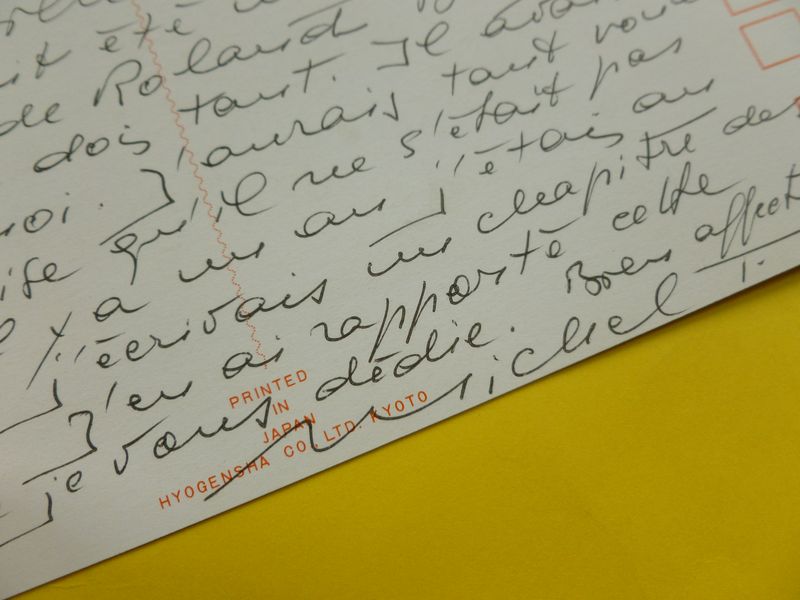 été
de Roland
dois tant. Il avai
moi. J'aurais tant voul
ise qu'il ne s'était pas
y a un an j'étais au
j'écrivais un chapitre des
J'en ai rapporté cette
je vous dédie. Bien affect
Michel T.
PRINTED
IN
JAPAN
HYOGENSHA CO., LTD. KYOTO